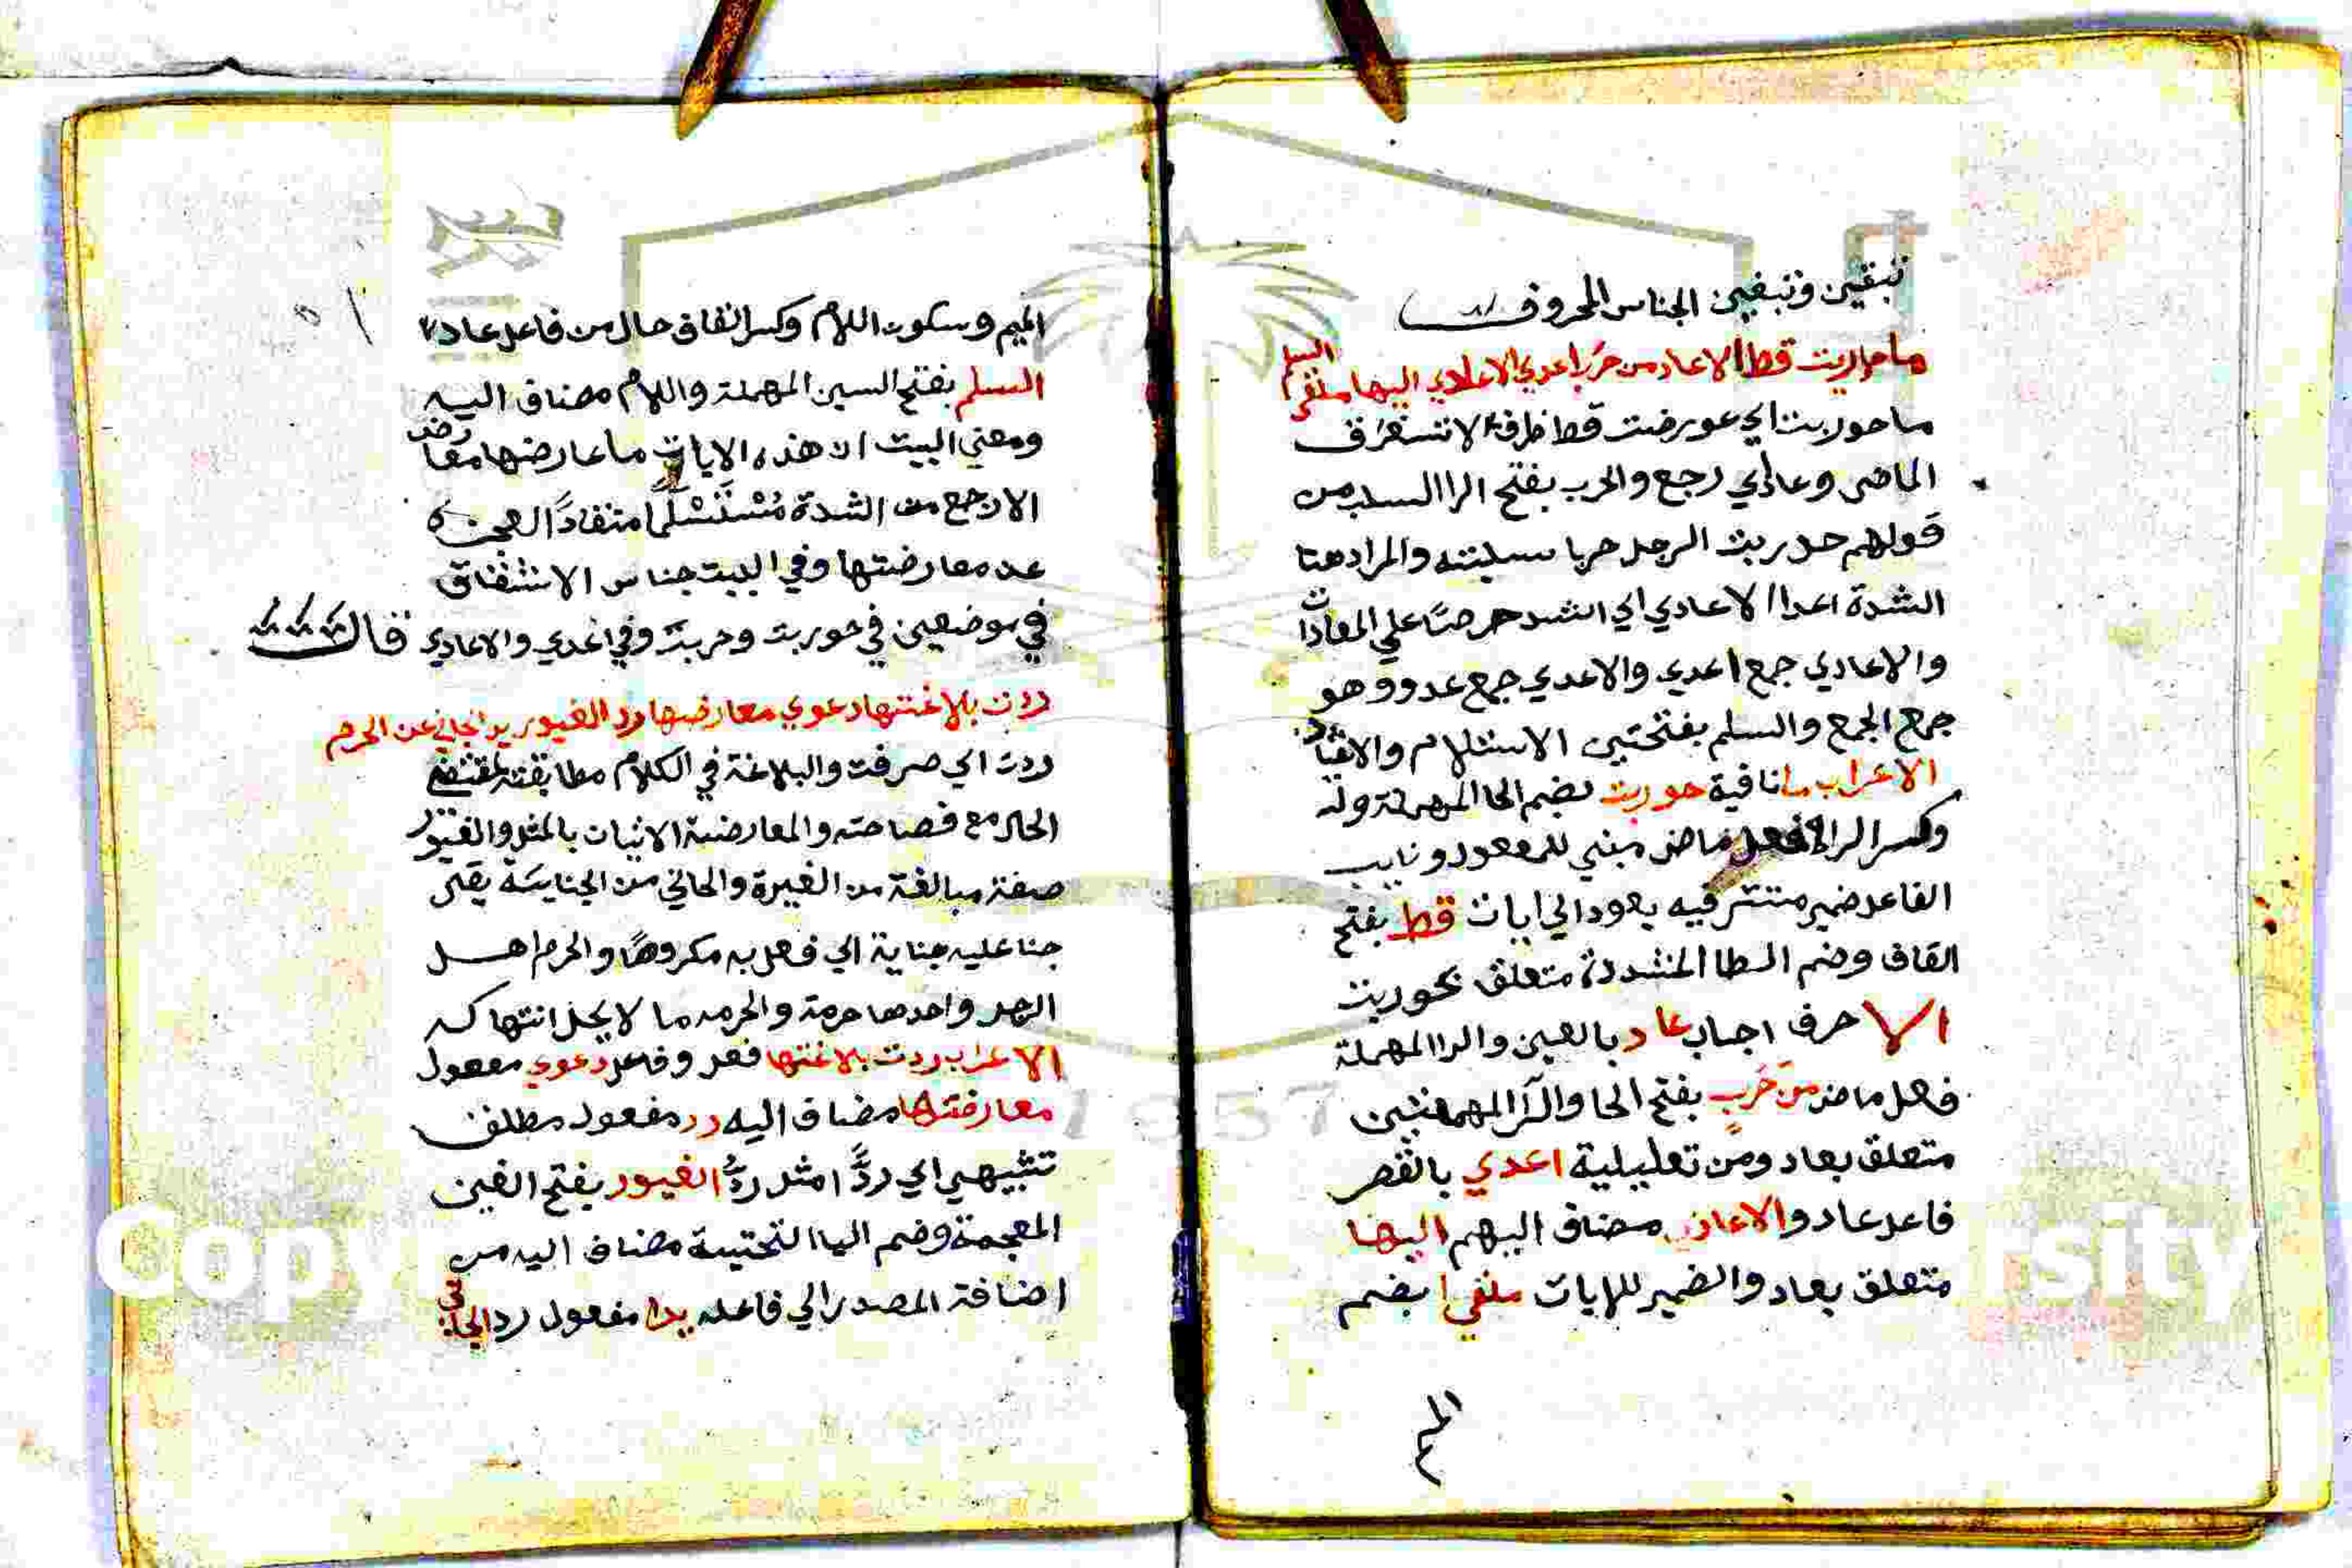 تبقين وتبغين الجناس المحروف
ما حوربت قط الا عاد من حرب اعدي الاعادي اليها ملقى السلم
ما حوربت اي عورضت قط ظرف لاستغرق
الماضي وعاد اي رجع والحرب بفتح الرا السلب من
قولهم حربت الرجل حربا سلبته والمراد هنا
الشدة اعدا الاعادي اي اشد حرصا علي المعادات
والاعادي جمع اعدي والاعدي جمع عدو وهو
جمع الجمع والسلم بفتحتين الاستلام والانقياد
الاعراب ما نافية حوربت بضم الحا المهملة
وكسر الرا فعل ماض مبني للمفعول ونايب
الفاعل ضمير مستتر فيه يعود الي ايات قط بفتح
القاف وضم الطا المشددة متعلق بحوربت
الا حرف اجاب عاد بالعين والدا المهملة
فعل ماض من حرب بفتح الحا والرا المهملتين
متعلق بعاد ومن تعليلية اعدي بالقصر
فاعل عاد والاعادي مضاف اليهم اليها
متعلق بعاد والضمير للايات ملقي بضم
الم
الميم وسكون اللام وكسر القاف حال من فاعل عاد
السلم بفتح السين المهملة واللام مضاف اليه
ومعني البيت ان هذه الايات ما عارضها معارض
الا رجع من الشدة مستسلما منقادا لعجزه
عن معارضتها وفي البيت جناس الاشتقاق
في موضعين في حوربت وحرب وفي اعدي والاعادي قال
ردت بلاغتها دعوي معارضها رد الغيور يد الجاني عن الحرم
ردت اي صرفت والبلاغة في الكلام مطابقته لمقتضي
الحال مع فصاحته والمعارضة الاتيان بالمثل والغيور
صفة مبالغة من الغيرة والجاني من الجناية يقال
جنا عليه جناية اي فعل به مكروها والحرم اهل
الرجل واحدها حرمة والحرمه ما لا يحل انتهاكه
الاعراب ردت بلاغتها فعل وفاعل دعوي مفعول
معارضتها مضاف اليه رد مفعول مطلق
تشبيهي اي ردا مثل رد الغيور بفتح الغين
المعجمة وضم اليا التحتية مضاف اليه من
اضافة المصدر الي فاعله يدا مفعول رد الجاني